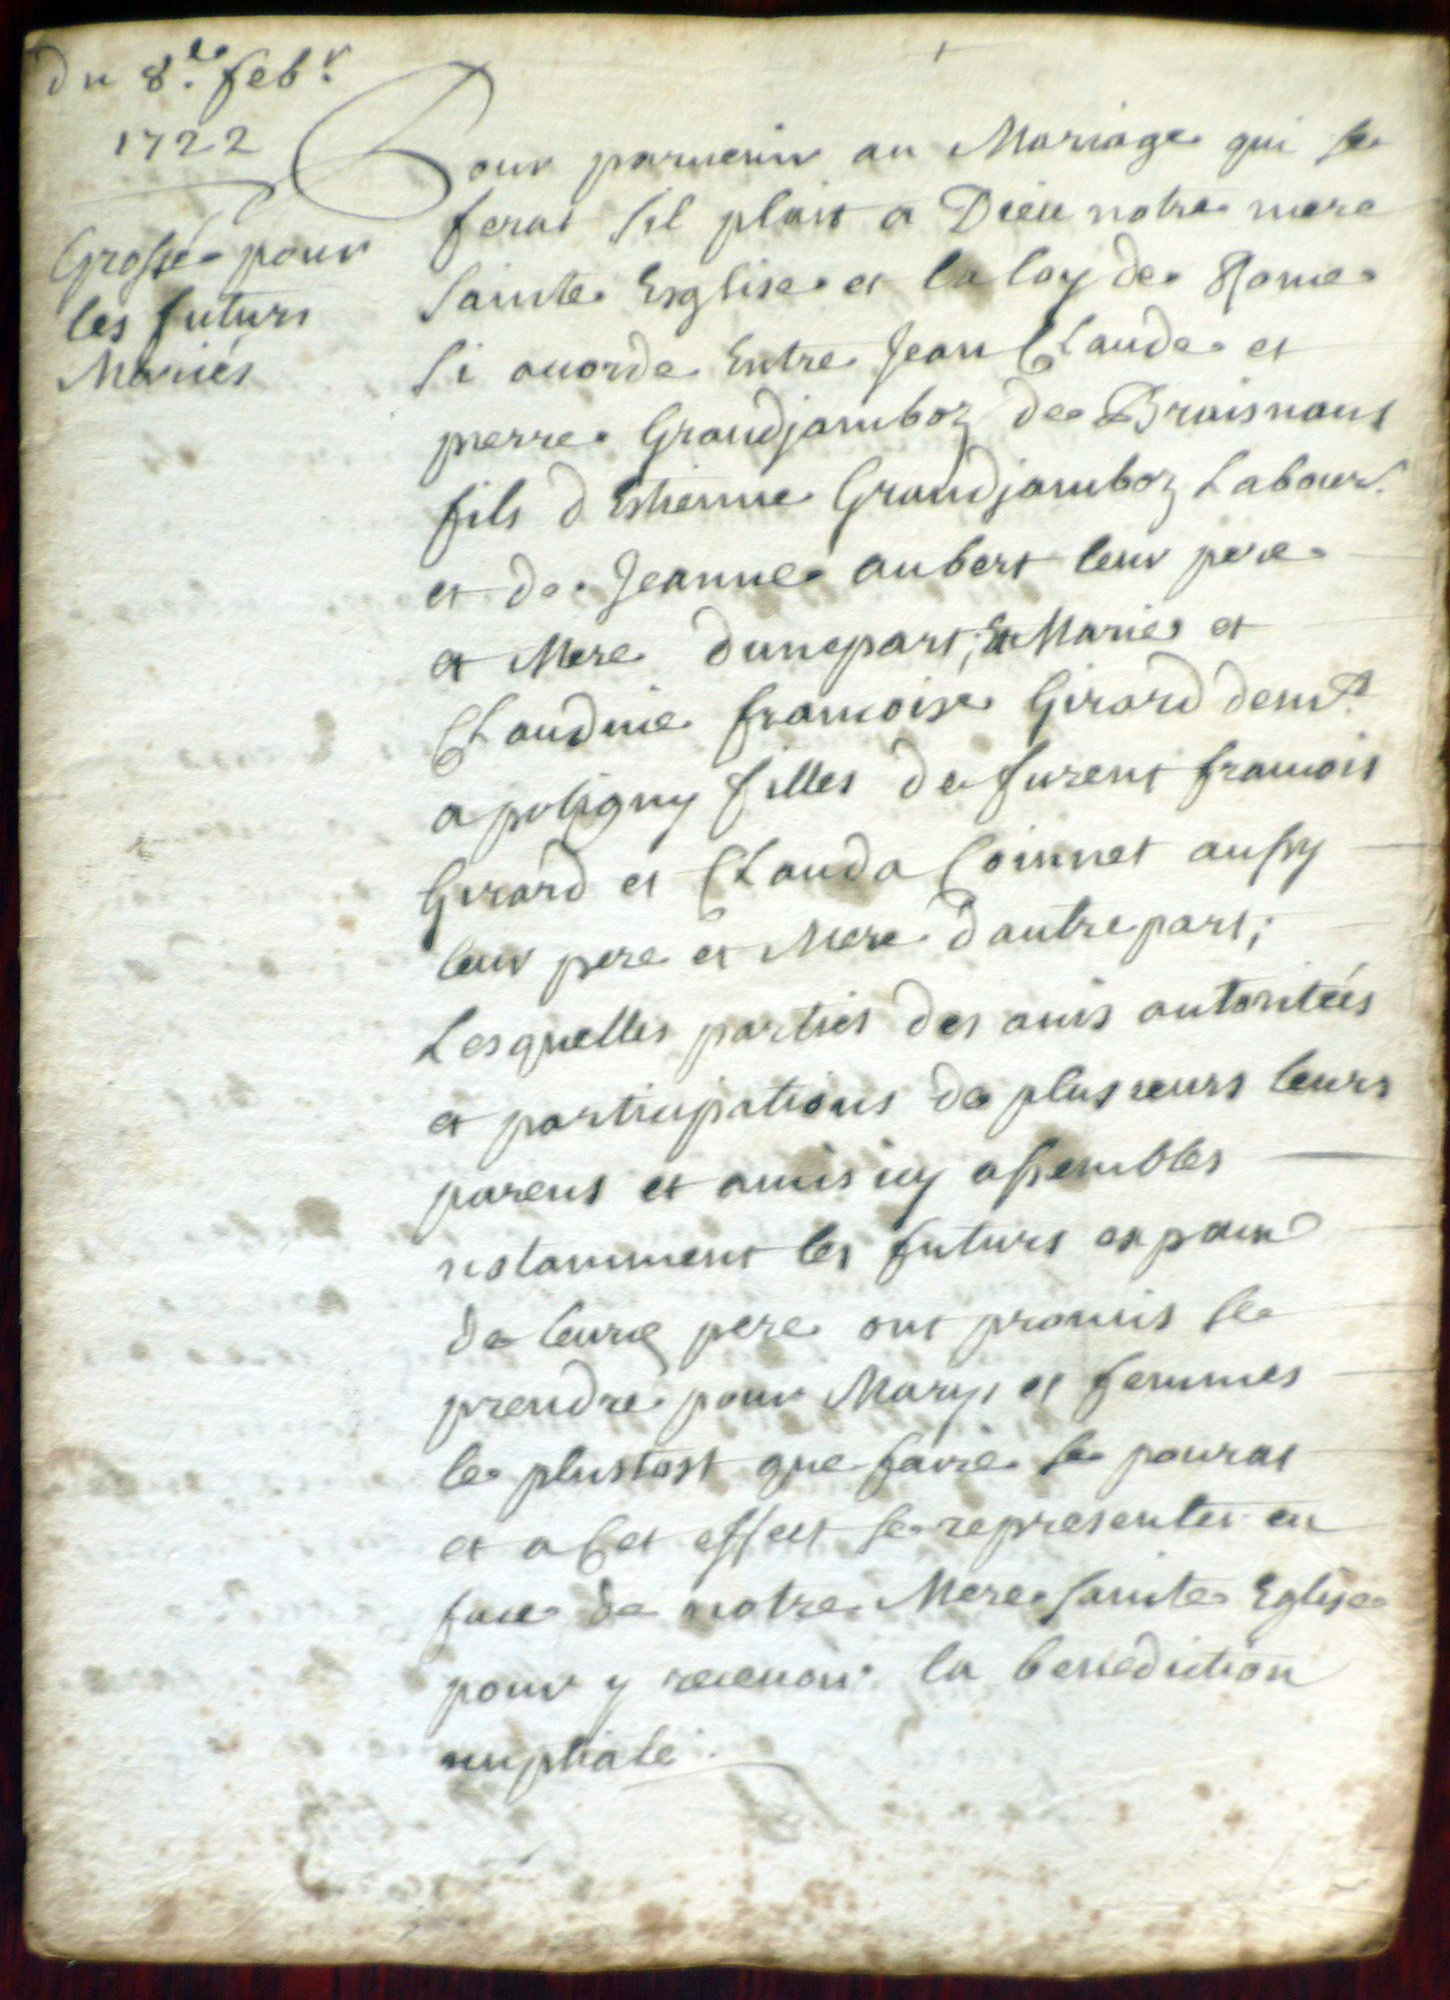 du 8.e febr.
1722
Grossé pour
les futurs
Mariés
Pour parvenir au Mariage qui se
ferat sil plait a Dieu notre mere
sainte Esglise et la loy de Rome
si accorde Entre Jean Claude et
pierre Grandjamboz de Braisnans
fils d Estienne Grandjamboz Labour.
et de Jeanne aubert leur pere
et Mere dunepart, Et Marie et
Claudine francoise Girard demt.
a poligny filles de furent francois
Girard et Clauda Coinnet aussy
leur pere et Mere dautre part;
Lesquelles parties des avis autoritées
et participations de plusieurs leurs
parens et amis icy assembles
notamment les futurs
de leurs pere ont promis se
prendre pour Marys et femmes
le plustost que faire se pourat
et a Cet effect se representer en
face de notre Mere sainte Eglise
pour y recevoir la benediction
nuptiale.